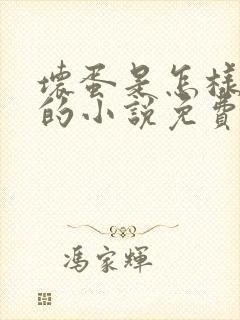 壞蛋是怎樣
的小說免費
馮家輝